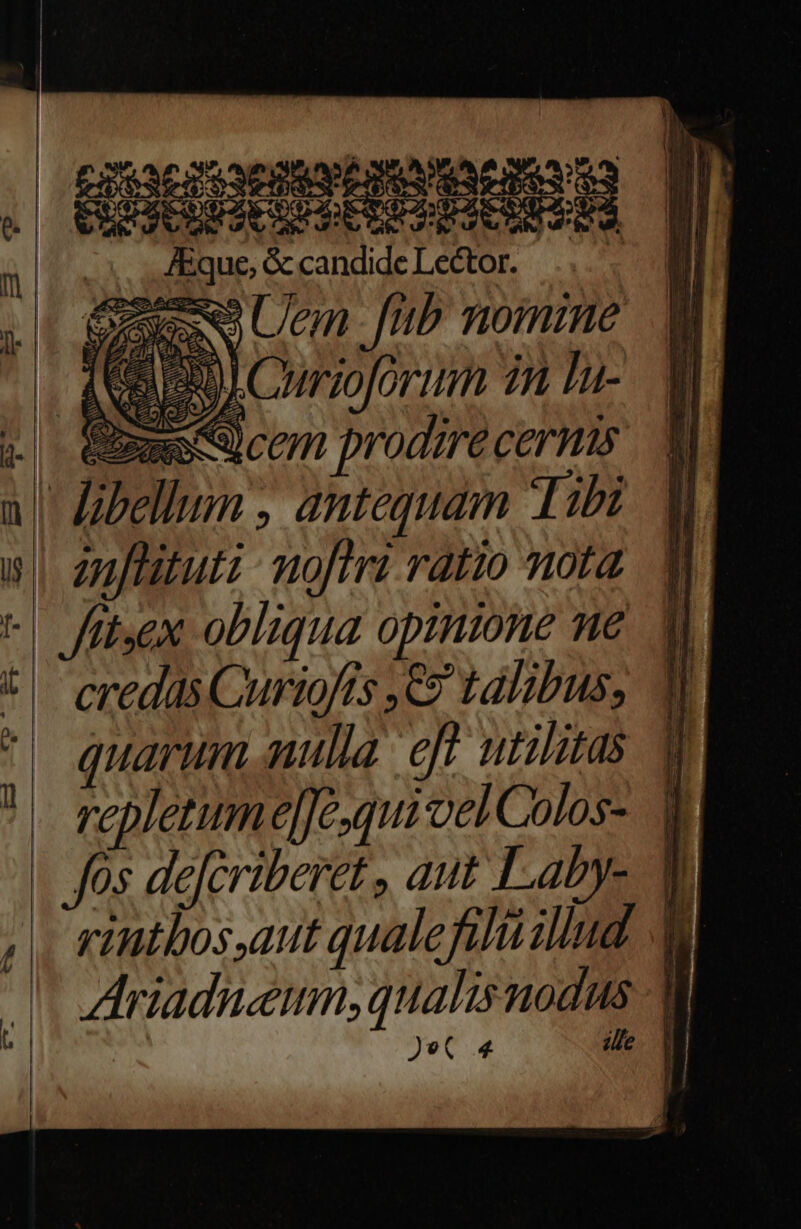 Æque, & candide Lector.
QUem ſub nomine
Curioſorum in lu-
cem prodire cernis
libellum , antequam Tibi
inſtituti noſtri ratio nota
ſit,ex obliqua opinione ne
credas Curioſis ,& talibus,
quarum nulla eſt utilitas
repletum eſſe,qui vel Colos-
ſos deſcriberet , aut Laby-
rinthos,aut quale filũ illud
Ariadnæum,qualis nodus
)•( 4 ille